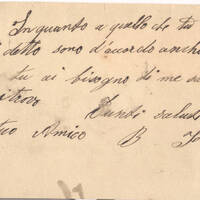 In quanto a quello che tu
detto sono d'acordo anche
tu ai bisogno di me sa
itrovo
Tanti salud
tuo Amico B